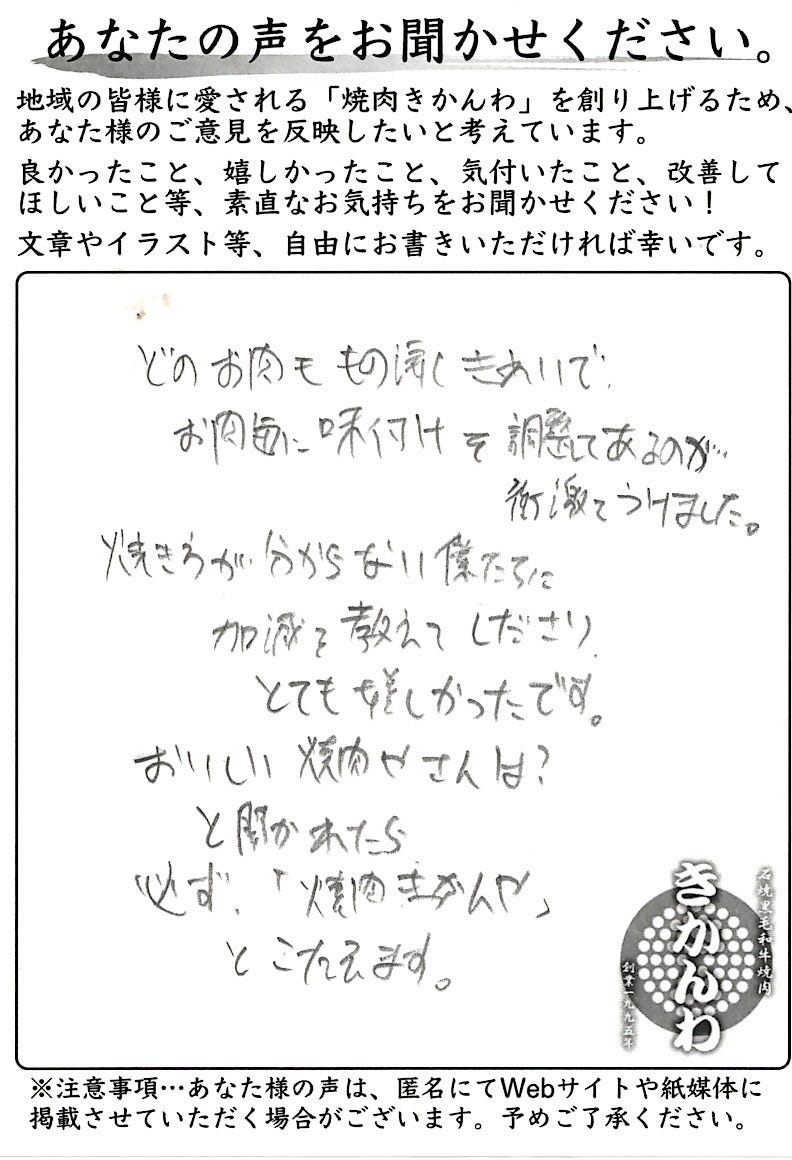 あなたの声をお聞かせください。
地域の皆様に愛される「焼肉きかんわ」を創り上げるため、
あなた様のご意見を反映したいと考えています。
良かったこと、嬉しかったこと、気付いたこと、改善して
ほしいこと等、素直なお気持ちをお聞かせください！
文章やイラスト等、自由にお書きいただければ幸いです。
どのお肉ももの凄くきれいで、
お肉毎に味付けを調整してあるのが
衝激をうけました。
焼き方が分からない僕たちに
加減を教えてくださり、
とても嬉しかったです。
おいしい焼肉やさんは？
と聞かれたら
必ず、「焼肉きかんや」
とこたえます。
石焼黒毛和牛焼肉
きかんわ
創業一九九五年
※注意事項…あなた様の声は、匿名にてWebサイトや紙媒体に
掲載させていただく場合がございます。予めご了承ください。